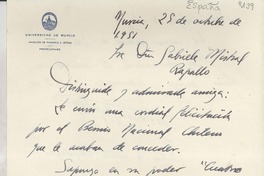 España
9139
UNIVERSIDAD DE MURCIA
FACULTAD DE FILOSOFIA Y LETRAS
Murcia, 25 de octubre de
1951
Sra. Dña. Gabriela Mistral
Rapallo
Distinguida y admirada amiga:
Le envío una cordial felicitación
por el Premio Nacional Chileno
que le acaban de conceder.
Supongo en su poder "Cuatro